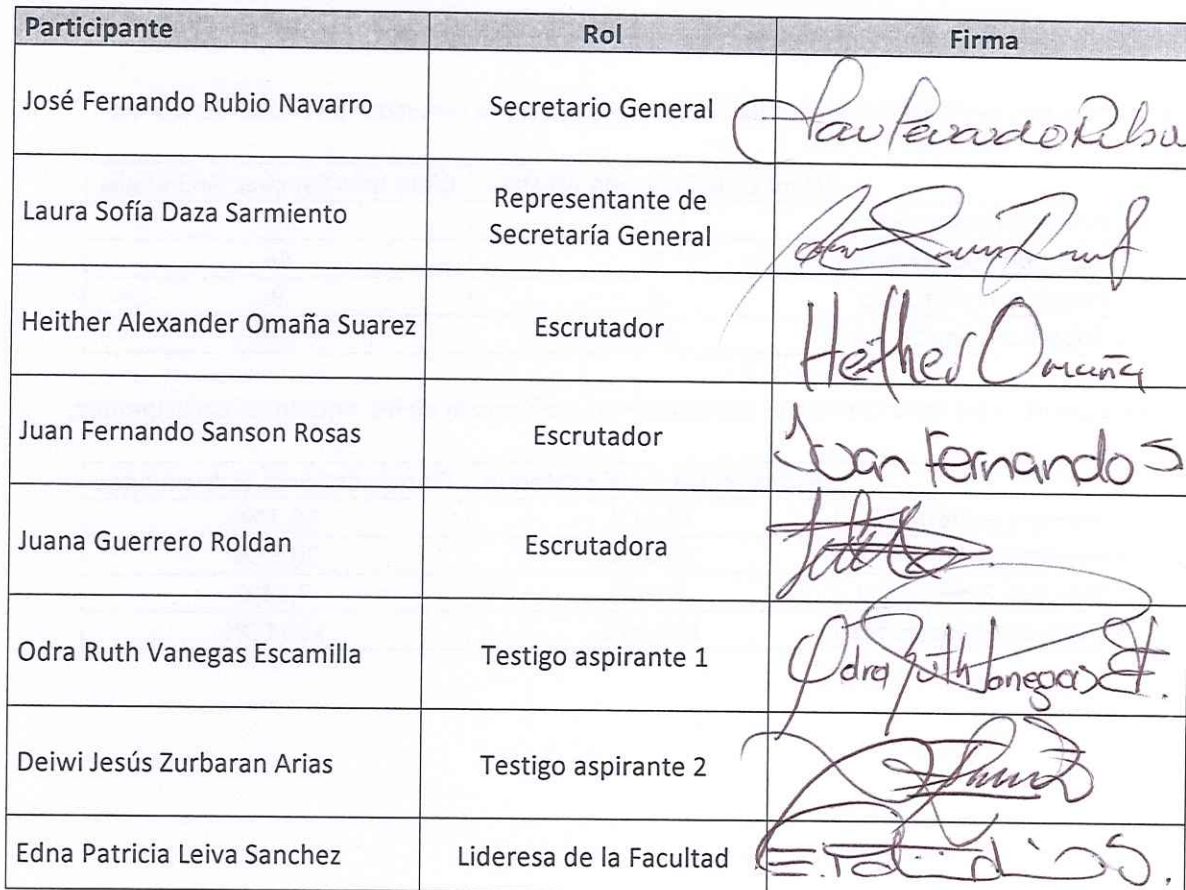 Participante Rol Firma
José Fernando Rubio Navarro Secretario General
Laura Sofía Daza Sarmiento Representante de
Secretaría General
Heither Alexander Omaña Suarez Escrutador Heither Omaña
Juan Fernando Sanson Rosas Escrutador Juan Fernando S
Juana Guerrero Roldan Escrutadora
Odra Ruth Vanegas Escamilla Testigo aspirante 1 Odra Ruth Vanegas E.
Deiwi Jesús Zurbaran Arias Testigo aspirante 2
Edna Patricia Leiva Sanchez Lideresa de la Facultad